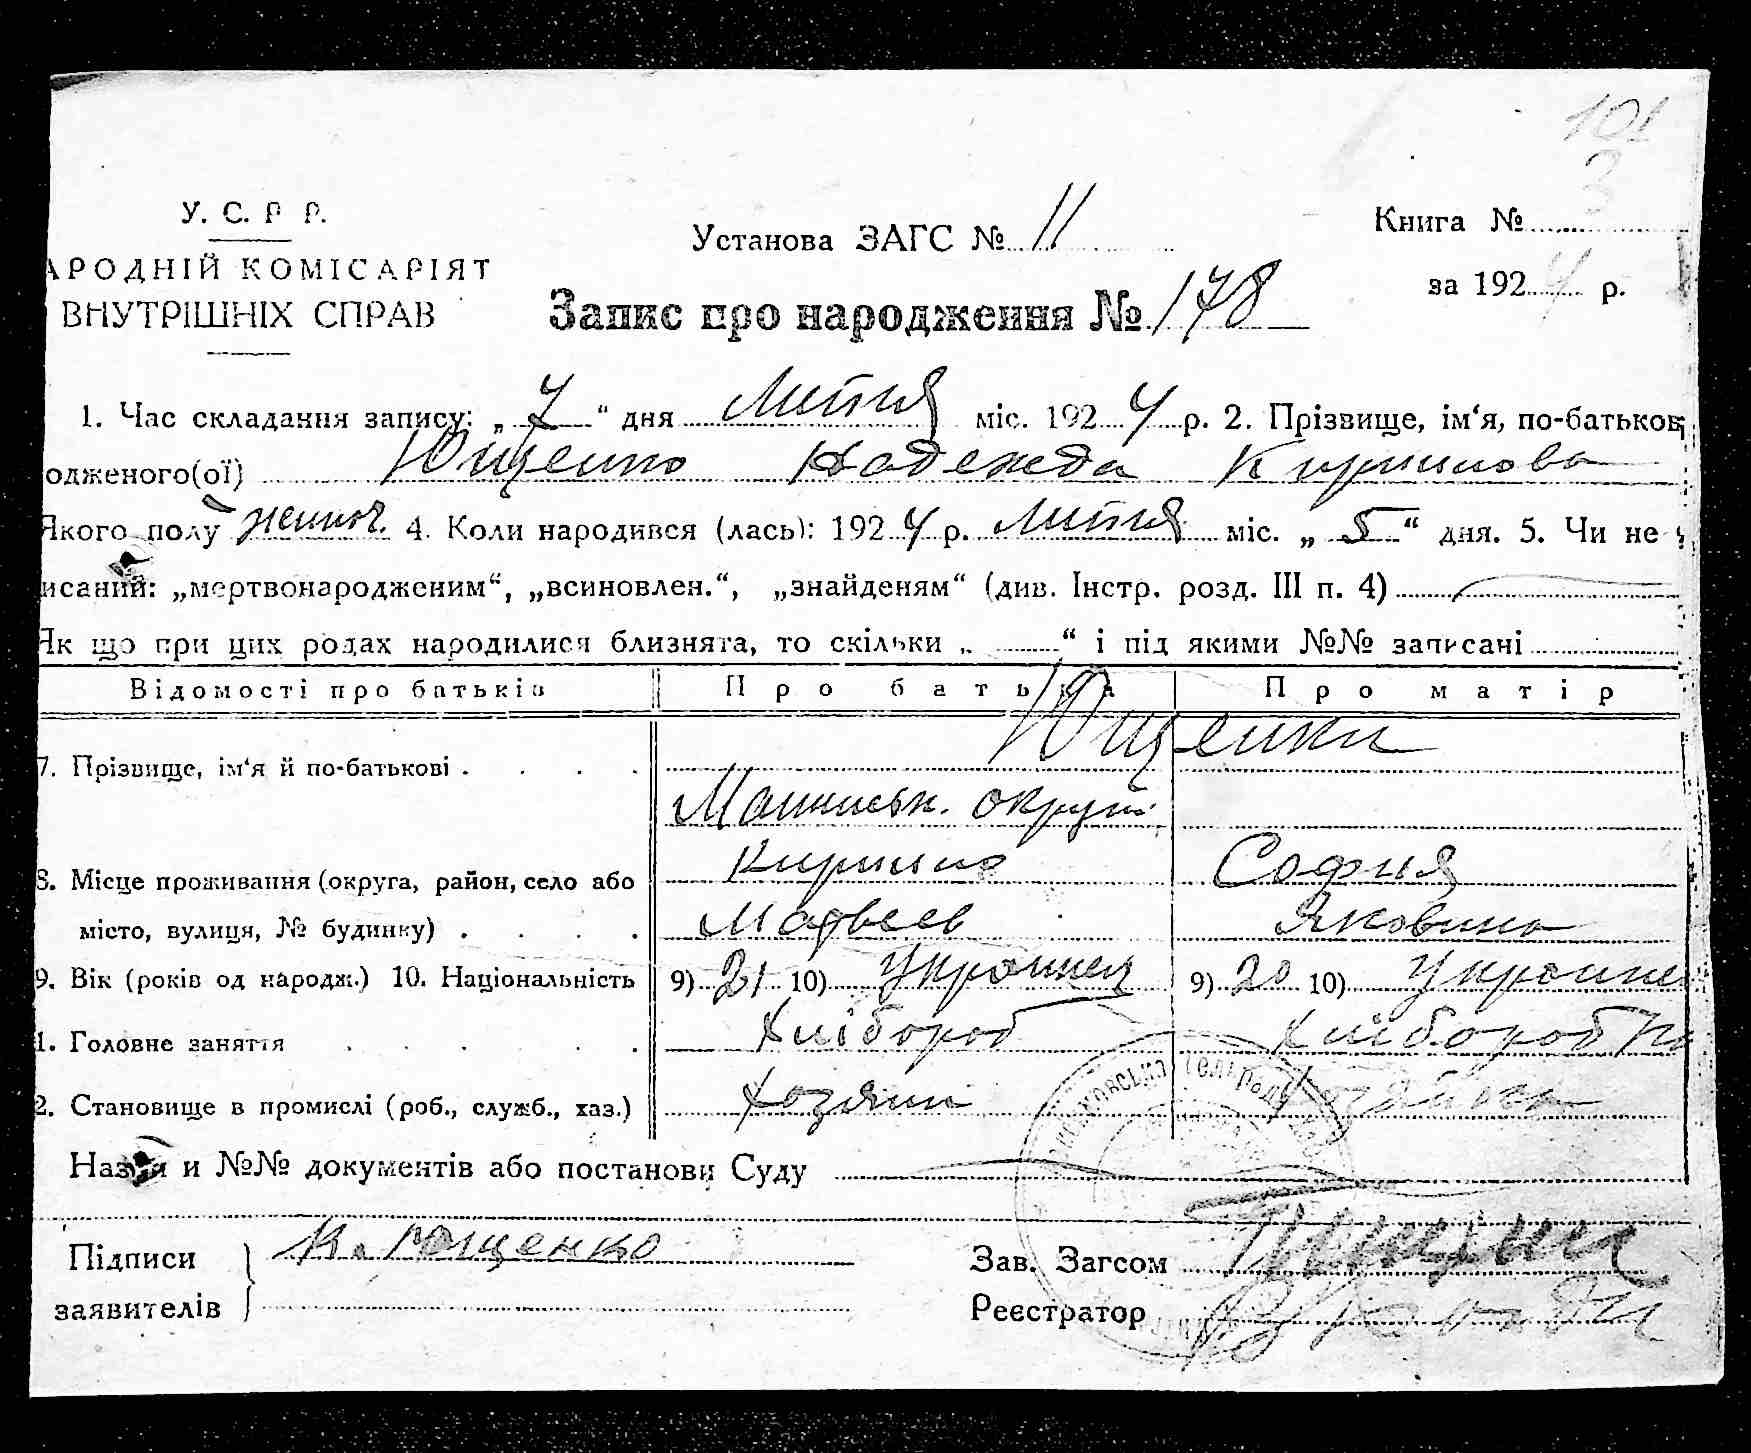 101
3
У. С. Р Р.
АРОДНІЙ КОМІСАРІЯТ
ВНУТРІШНІХ СПРАВ
Установа ЗАГС № 11
Книга №
за 1924 р.
Запис про народження № 178
1. Час складання запису: „ 7 “ дня Липня міс. 1924 р. 2. Прізвище, ім‘я, по-батьков
одженого(ої) Ющенко Надежда Кирилова
Якого полу жиноч. 4. Коли народився (лась): 1924 р. Липня міс. „ 5 “ дня. 5. Чи не
исаний: „мертвонародженим“, „всиновлен.“, „знайденям“ (див. Інстр. розд. III п. 4)
Як що при цих родах народилися близнята, то скільки „ “ і під якими №№ записані
Відомості про батьків Про батька Про матір
7. Прізвище, ім‘я й по-батькові . . . . Ющенки
округи
8. Місце проживання (округа, район, село або Кирило София
місто, вулиця, № будинку) . . . . Матвеев Яковина
9. Вік (років од народж.) 10. Національність 9) 21 10) Украинец 9) 20 10) Украине
1. Головне заняття . . . . . Хлібороб Хлібороб
2. Становище в промислі (роб., служб., хаз.) Хозяин Хозяйка
Назва и №№ документів або постанови Суду
Підписи К. Ющенко Зав. Загсом
заявителів Реєстратор